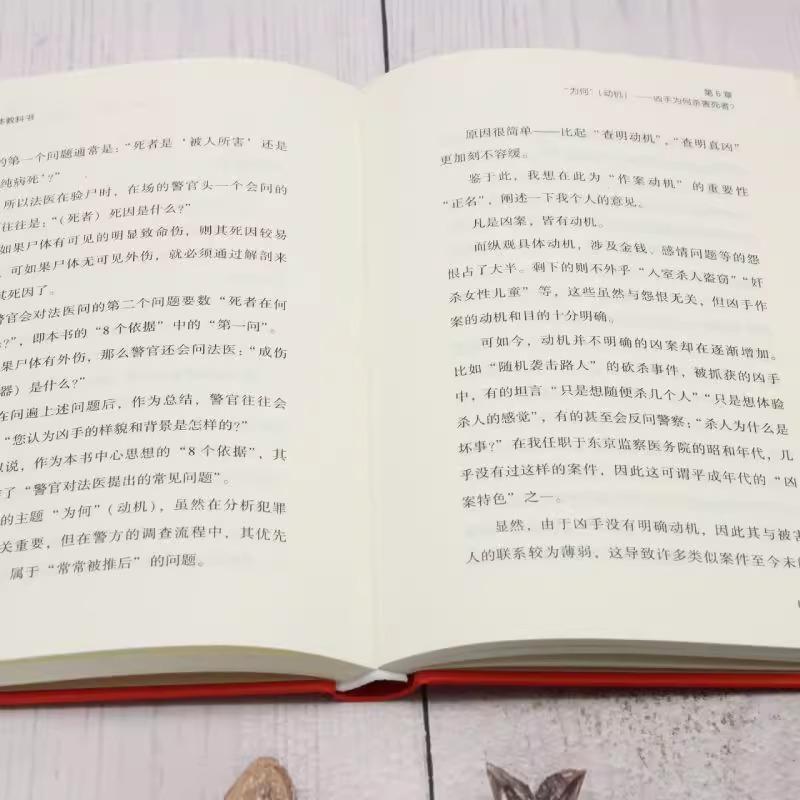 体教科书
的第一个问题通常是：“死者是‘被人所害’还是
纯病死’？”
所以法医在验尸时，在场的警官头一个会问的
往往是：“（死者）死因是什么？”
如果尸体有可见的明显致命伤，则其死因较易
可如果尸体无可见外伤，就必须通过解剖来
其死因了。
警官会对法医问的第二个问题要数“死者在何
？”，即本书的“8个依据”中的“第一问”。
果尸体有外伤，那么警官还会问法医：“成伤
器）是什么？”
在问遍上述问题后，作为总结，警官往往会
“您认为凶手的样貌和背景是怎样的？”
以说，作为本书中心思想的“8个依据”，其
了“警官对法医提出的常见问题”。
的主题“为何”（动机），虽然在分析犯罪
关重要，但在警方的调查流程中，其优先
属于“常常被推后”的问题。
第6章
“为何”（动机）——凶手为何杀害死者？
原因很简单——比起“查明动机”，“查明真凶”
更加刻不容缓。
鉴于此，我想在此为“作案动机”的重要性
“正名”，阐述一下我个人的意见。
凡是凶案，皆有动机。
而纵观具体动机，涉及金钱、感情问题等的怨
恨占了大半。剩下的则不外乎“入室杀人盗窃”“奸
杀女性儿童”等，这些虽然与怨恨无关，但凶手作
案的动机和目的十分明确。
可如今，动机并不明确的凶案却在逐渐增加。
比如“随机袭击路人”的砍杀事件，被抓获的凶手
中，有的坦言“只是想随便杀几个人”“只是想体验
杀人的感觉”，有的甚至会反问警察：“杀人为什么是
坏事？”在我任职于东京监察医务院的昭和年代，几
乎没有过这样的案件，因此这可谓平成年代的“凶
案特色”之一。
显然，由于凶手没有明确动机，因此其与被害
人的联系较为薄弱，这导致许多类似案件至今未